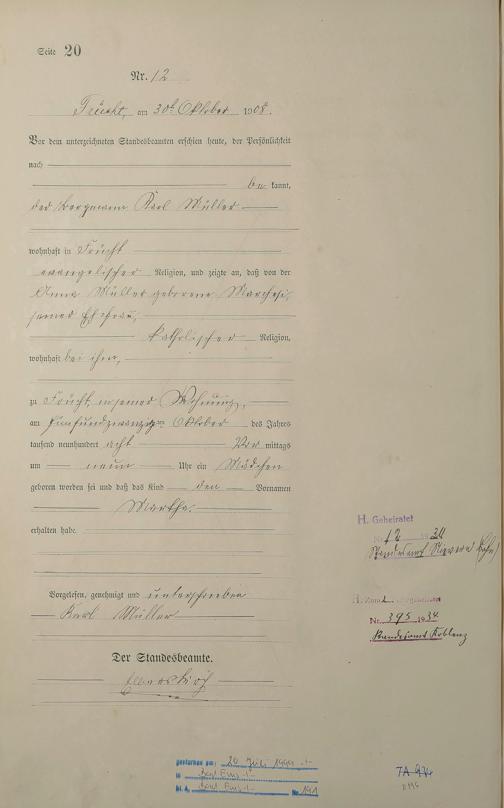 Seite 20
Nr. 12
Frücht, am 30t Oktober 1908.
Vor dem unterzeichneten Standesbeamten erschien heute, der Persönlichkeit
nach
be kannt,
der Bergmann Karl Müller
wohnhaft in Frücht
evangelischer Religion, und zeigte an, daß von der
Anna Müller geborene Marchesi,
seiner Ehefrau,
katholischer Religion,
wohnhaft bei ihm,
zu Frücht, in seiner Wohnung,
am fünfundzwanzigsten Oktober des Jahres
tausend neunhundert acht Vor mittags
um neun Uhr ein Mädchen
geboren worden sei und daß das Kind den Vornamen
Martha.
erhalten habe.
Vorgelesen, genehmigt und unterschrieben
Karl Müller
Der Standesbeamte.
H. Geheiratet
Nr. 12
Standesamt Nievern
Nr. 395 1934
Standesamt Koblenz
gestorben am: 24 Juli 1991
in Bad Ems
St. A. Bad Ems Nr. 191